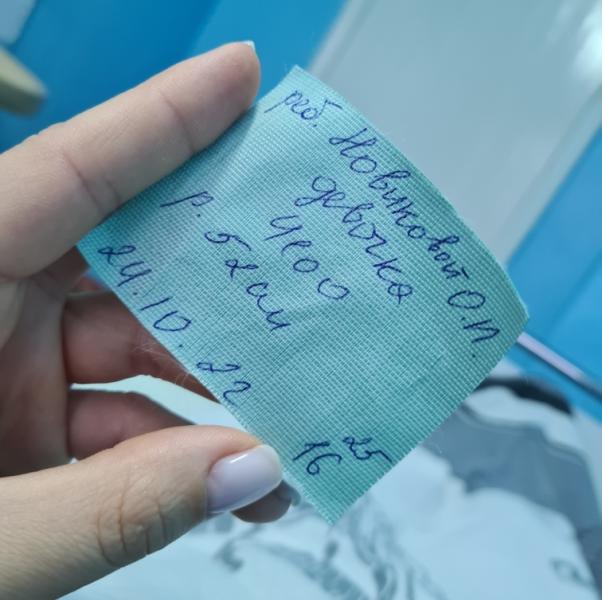 реб. Новиковой О.П.
девочка
4100
р. 52 см
24.10.22
16 25